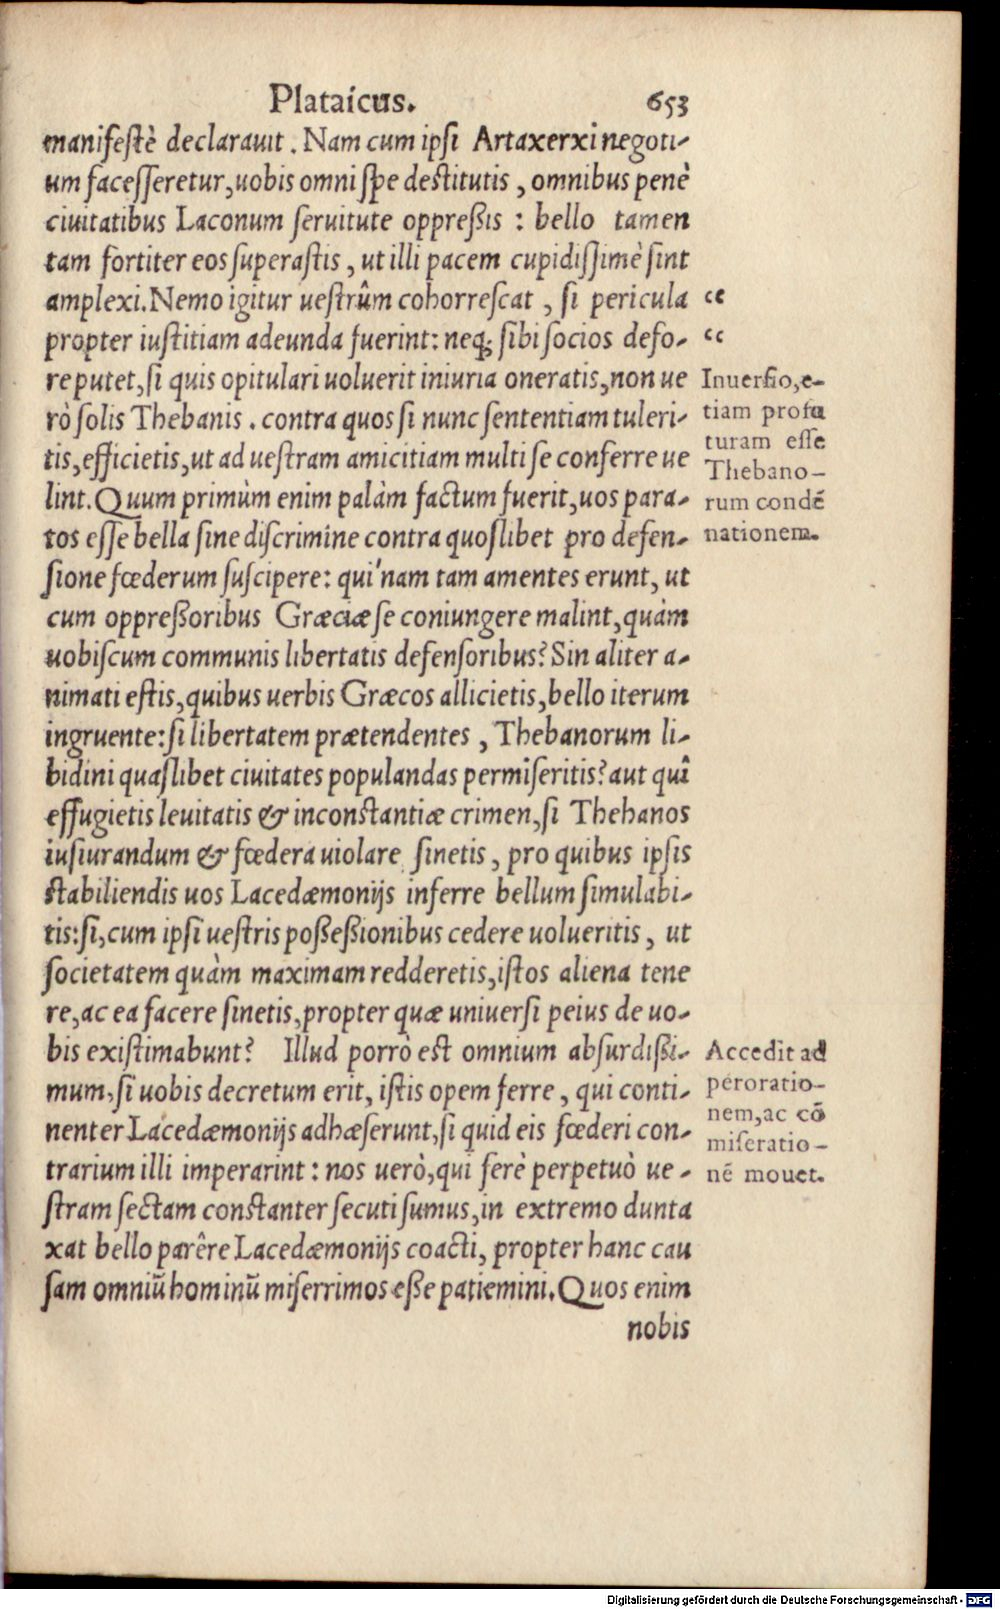 Plataicus. 653
manifestè declarauit. Nam cum ipsi Artaxerxi negoti-
um facesseretur, uobis omni spe destitutis, omnibus penè
ciuitatibus Laconum seruitute oppreßis: bello tamen
tam fortiter eos superastis, ut illi pacem cupidissimè sint
amplexi. Nemo igitur uestrûm cohorrescat, si pericula
propter iustitiam adeunda fuerint: neq; sibi socios defo-
re putet, si quis opitulari uoluerit iniuria oneratis, non ue
rò solis Thebanis. contra quos si nunc sententiam tuleri-
tis, efficietis, ut ad uestram amicitiam multi se conferre ue
lint. Quum primùm enim palàm factum fuerit, uos para-
tos esse bella sine discrimine contra quoslibet pro defen-
sione fœderum suscipere: qui'nam tam amentes erunt, ut
cum oppreßoribus Græciæ se coniungere malint, quàm
uobiscum communis libertatis defensoribus? Sin aliter a-
nimati estis, quibus uerbis Græcos allicietis, bello iterum
ingruente: si libertatem prætendentes, Thebanorum li-
bidini quaslibet ciuitates populandas permiseritis? aut quî
effugietis leuitatis & inconstantiæ crimen, si Thebanos
iusiurandum & fœdera uiolare sinetis, pro quibus ipsis
stabiliendis uos Lacedæmonijs inferre bellum simulabi-
tis: si, cum ipsi uestris poßeßionibus cedere uolueritis, ut
societatem quàm maximam redderetis, istos aliena tene
re, ac ea facere sinetis, propter quæ uniuersi peius de uo-
bis existimabunt? Illud porrò est omnium absurdißi-
mum, si uobis decretum erit, istis opem ferre, qui conti-
nenter Lacedæmonijs adhæserunt, si quid eis fœderi con-
trarium illi imperarint: nos uerò, qui ferè perpetuò ue-
stram sectam constanter secuti sumus, in extremo dunta
xat bello parêre Lacedæmonijs coacti, propter hanc cau
sam omniũ hominũ miserrimos eße patiemini. Quos enim
nobis
cc
cc
Inuersio, e-
tiam profu
turam esse
Thebano-
rum condē
nationem.
Accedit ad
peroratio-
nem, ac cō
miseratio-
nē mouet.
Digitalisierung gefördert durch die Deutsche Forschungsgemeinschaft - DFG